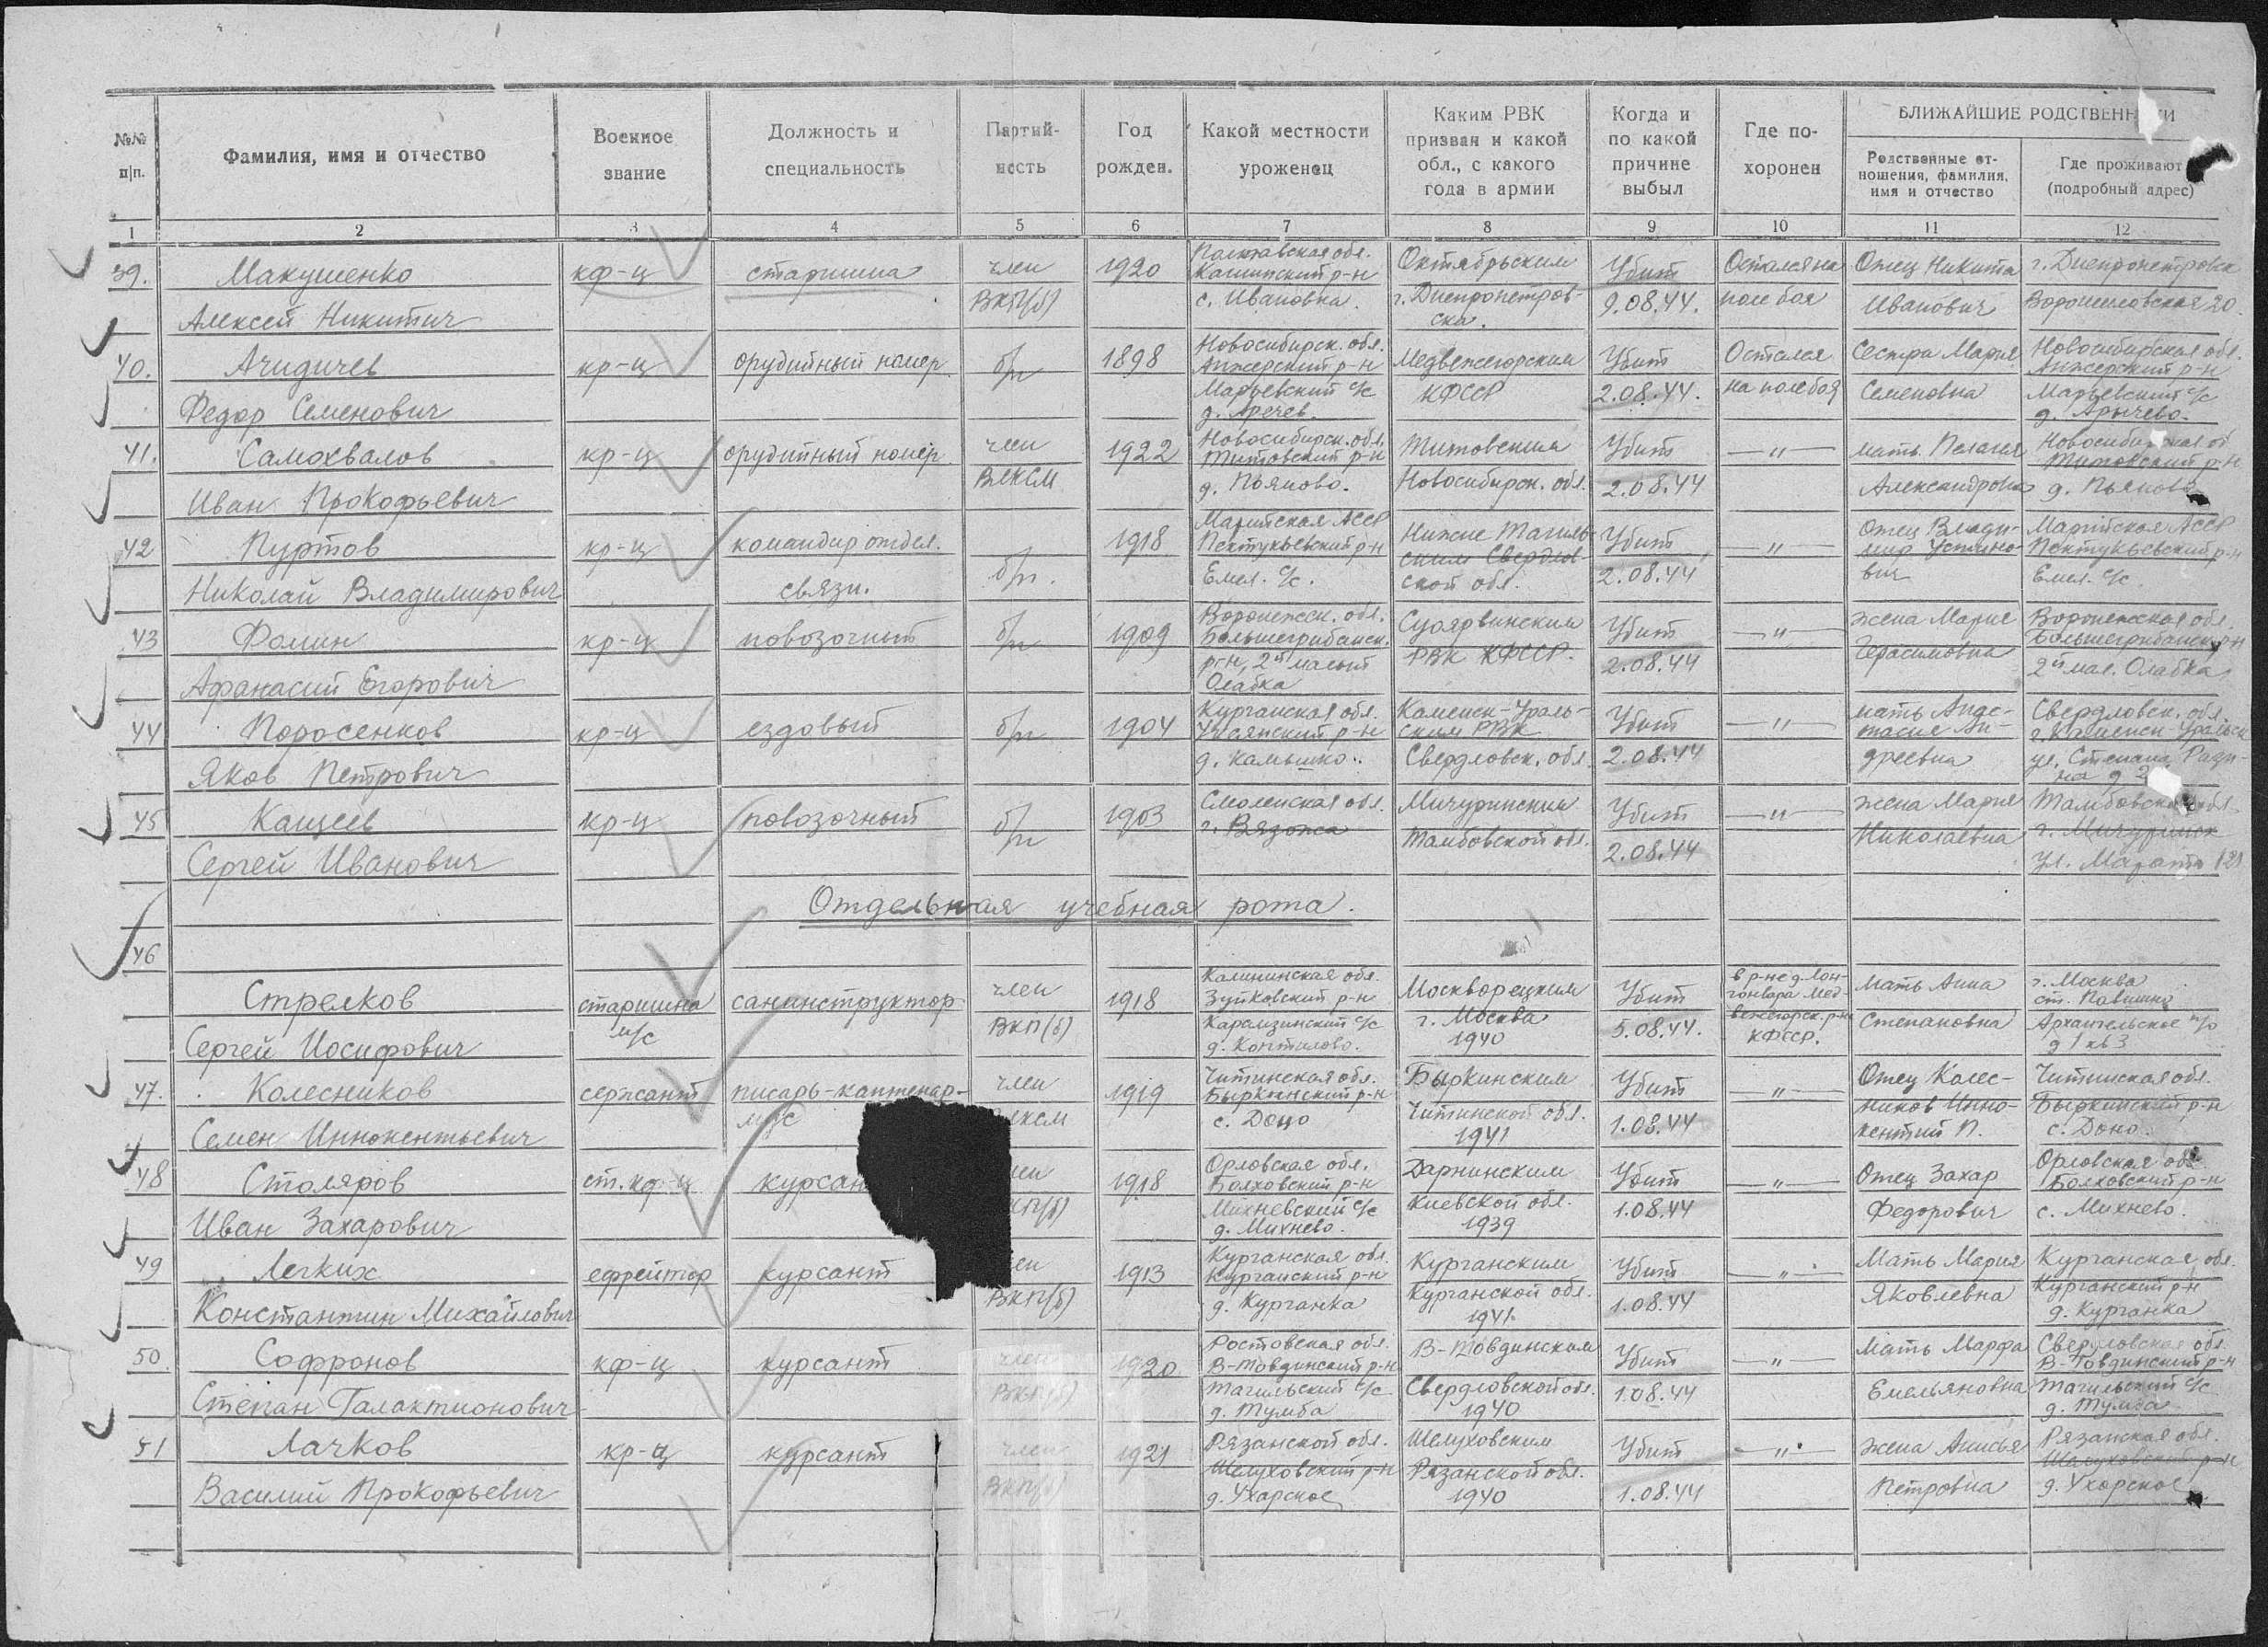 №№ п/п.
Фамилия, имя и отчество
Военное звание
Должность и специальность
Партий- ность
Год рожден.
Какой местности уроженец
Каким РВК призван и какой обл., с какого года в армии
Когда и по какой причине выбыл
Где по- хоронен
БЛИЖАЙШИЕ РОДСТВЕННИКИ
Родственные от- ношения, фамилия, имя и отчество
Где проживают (подробный адрес)
1 2 3 4 5 6 7 8 9 10 11 12
39. Макушенко Алексей Никитич
кф-ц
старшина
член ВКП(б)
1920
Полтавская обл.
р-н
с. Ивановка.
Октябрьским
г. Днепропетров-
ска.
Убит
9.08.44.
Остался на
поле боя
Отец Никита
Иванович
г. Днепропетровск
Ворошиловская 20.
40. Ачидичев Федор Семенович
кр-ц
орудийный номер
б/п
1898
Новосибирск. обл.
Анжерский р-н
Марьевский с/с
д. Аречев.
Медвежегорским
КФССР
Убит
2.08.44.
Остался
на поле боя
Сестра Мария
Семеновна
Новосибирская обл.
Анжерский р-н
Марьевский с/с
д. Арычево.
41. Самохвалов Иван Прокофьевич
кр-ц
орудийный номер
член ВЛКСМ
1922
Новосибирск. обл.
Титовский р-н
д. Пьяново.
Титовским
Новосибирск. обл.
Убит
2.08.44
—"—
мать Пелагея
Александровна
Новосибирская об
Титовский р-н
д. Пьяново
42 Пуртов Николай Владимирович
кр-ц
командир отдел.
связи.
б/п.
1918
Марийская АССР
Пектукьевский р-н
Емел. с/с.
Нижне Тагиль-
ским Свердлов-
ской обл.
Убит
2.08.44
—"—
Отец Влади-
мир Устино-
вич
Марийская АССР
Пектукьевский р-н
Емел. с/с.
43 Фомин Афанасий Егорович
кр-ц
повозочный
б/п
1909
Воронежск. обл.
Большегрибанск.
р-н, 2й малый
Олабка
Суоярвинским
РВК КФССР.
Убит
2.08.44
—"—
жена Мария
Герасимовна
Воронежская обл.
Большегрибанск р-н
2й мал. Олабка
44 Поросенков Яков Петрович
кр-ц
ездовый
б/п
1904
Курганская обл.
р-н
д. Камышко.
Каменск-Ураль-
ским РВК
Свердловск. обл.
Убит
2.08.44
—"—
мать
дреевна
Свердловск. обл.
г. Каменск-Уральск
ул. Степана Рази-
на д
45 Кащеев Сергей Иванович
кр-ц
повозочный
б/п
1903
Смоленская обл.
г. Вязьма
Мичуринским
Тамбовской обл.
Убит
2.08.44
—"—
жена Мария
Николаевна
Тамбовская обл.
г. Мичуринск
ул. Марата 121
Отдельная учебная рота.
46 Стрелков Сергей Иосифович
старшина
м/с
санинструктор
член ВКП(б)
1918
Калининская обл.
Зубковский р-н
Карамзинский с/с
д. Контилово.
Москворецким
г. Москва
1940
Убит
5.08.44.
в р-не д. Лон-
гонвара Мед-
вежегорск. р-на
КФССР.
Мать Анна
Степановна
г. Москва
ст. Павшино
Архангельское п/о
д 1 кв 3
47. Колесников Семен Иннокентьевич
сержант
писарь-каптенар-
мус
член ВЛКСМ
1919
Читинская обл.
Быркинский р-н
с. Доно
Быркинским
Читинской обл.
1941
Убит
1.08.44
—"—
Отец Колес-
ников Инно-
кентий П.
Читинская обл.
Быркинский р-н
с. Доно.
48 Столяров Иван Захарович
ст. кф-ц
курсан
1918
Орловская обл.
Болховский р-н
Михневский с/с
д. Михнево.
Дарницким
Киевской обл.
1939
Убит
1.08.44
—"—
Отец Захар
Федорович
Орловская об
Болховский р-н
с. Михнево.
49 Легких Константин Михайлович
ефрейтор
курсант
ВКП(б)
1913
Курганская обл.
Курганский р-н
д. Курганка
Курганским
Курганской обл.
1941.
Убит
1.08.44
—"—
Мать Мария
Яковлевна
Курганская обл.
Курганский р-н
д. Курганка
50. Софронов Степан Галактионович
кф-ц
курсант
член ВКП(б)
1920
Ростовская обл.
В-Товдинский р-н
Тагильский с/с
д. Тумба
В-Товдинским
Свердловской обл.
1940
Убит
1.08.44
—"—
Мать Марфа
Емельяновна
Свердловская обл.
В-Товдинский р-н
Тагильский с/с
д. Тумба
51 Лачков Василий Прокофьевич
кр-ц
курсант
член ВКП(б)
1921
Рязанской обл.
Шелуховский р-н
д. Ухорское
Шелуховским
Рязанской обл.
1940
Убит
1.08.44
—"—
жена Анисья
Петровна
Рязанская обл.
Шелуховский р-н
д. Ухорское